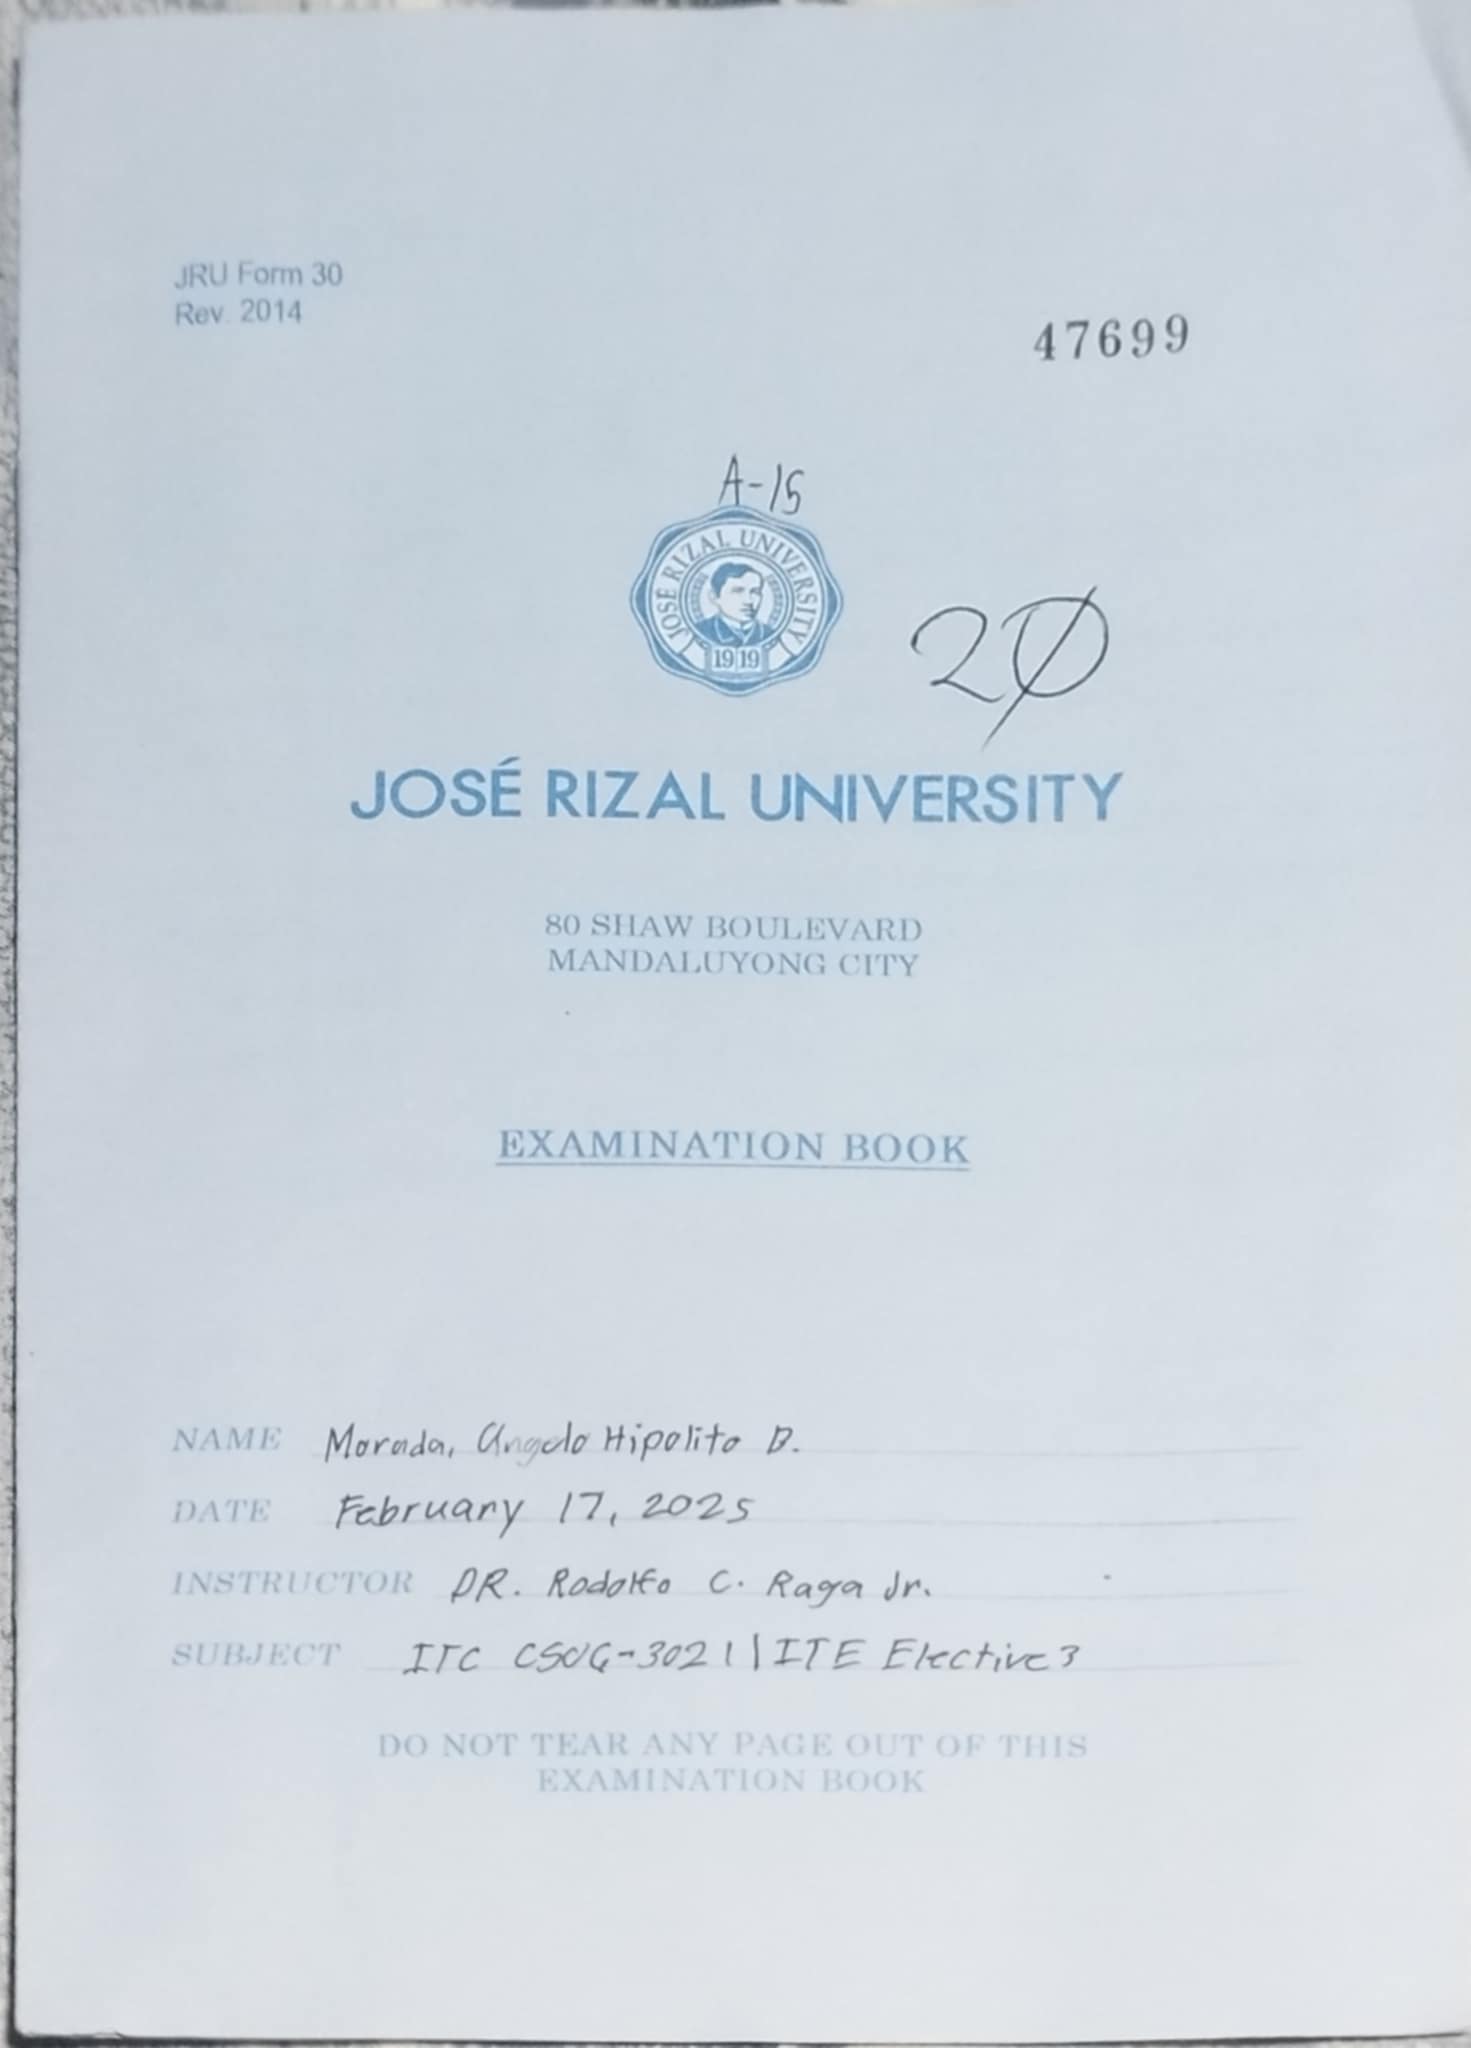 JRU Form 30
Rev. 2014
47699
A-15
JOSÉ RIZAL UNIVERSITY
1919
20
JOSÉ RIZAL UNIVERSITY
80 SHAW BOULEVARD
MANDALUYONG CITY
EXAMINATION BOOK
NAME Morada, Angelo Hipolito D.
DATE February 17, 2025
INSTRUCTOR DR. Rodolfo C. Raga Jr.
SUBJECT ITC 302 | | ITE Elective 3
DO NOT TEAR ANY PAGE OUT OF THIS
EXAMINATION BOOK